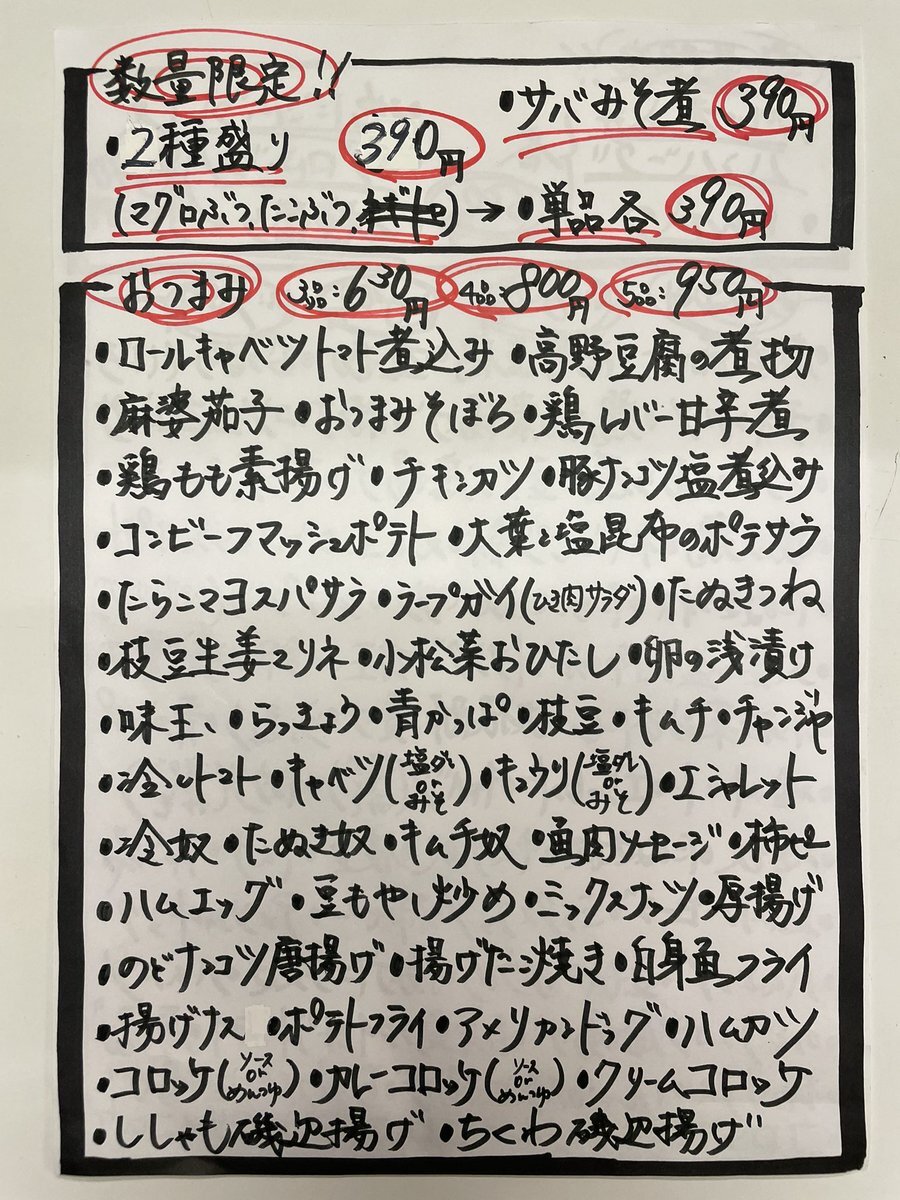 数量限定!!
・サバみそ煮 390円
・2種盛り 390円
(マグロぶつ、たこぶつ、) → ・単品各 390円
おつまみ 3品:630円 4品:800円 5品:950円
・ロールキャベツトマト煮込み ・高野豆腐の煮物
・麻婆茄子 ・おつまみそぼろ ・鶏レバー甘辛煮
・鶏もも素揚げ ・チキンカツ ・豚ナンコツ塩煮込み
・コンビーフマッシュポテト ・大葉と塩昆布のポテサラ
・たらこマヨスパサラ ・ラープガイ(ひき肉サラダ) ・たぬきつね
・枝豆生姜マリネ ・小松菜おひたし ・卵の浅漬け
・味玉、 ・らっきょう ・青かっぱ ・枝豆 ・キムチ ・チャンジャ
・冷しトマト ・キャベツ(塩ダレorみそ) ・キュウリ(塩ダレorみそ) ・エシャレット
・冷奴 ・たぬき奴 ・キムチ奴 ・魚肉ソーセージ ・柿ピー
・ハムエッグ ・豆もやし炒め ・ミックスナッツ ・厚揚げ
・のどナンコツ唐揚げ ・揚げたこ焼き ・白身魚フライ
・揚げナス ・ポテトフライ ・アメリカンドッグ ・ハムカツ
・コロッケ(ソースorめんつゆ) ・カレーコロッケ(ソースorめんつゆ) ・クリームコロッケ
・ししゃも磯辺揚げ ・ちくわ磯辺揚げ